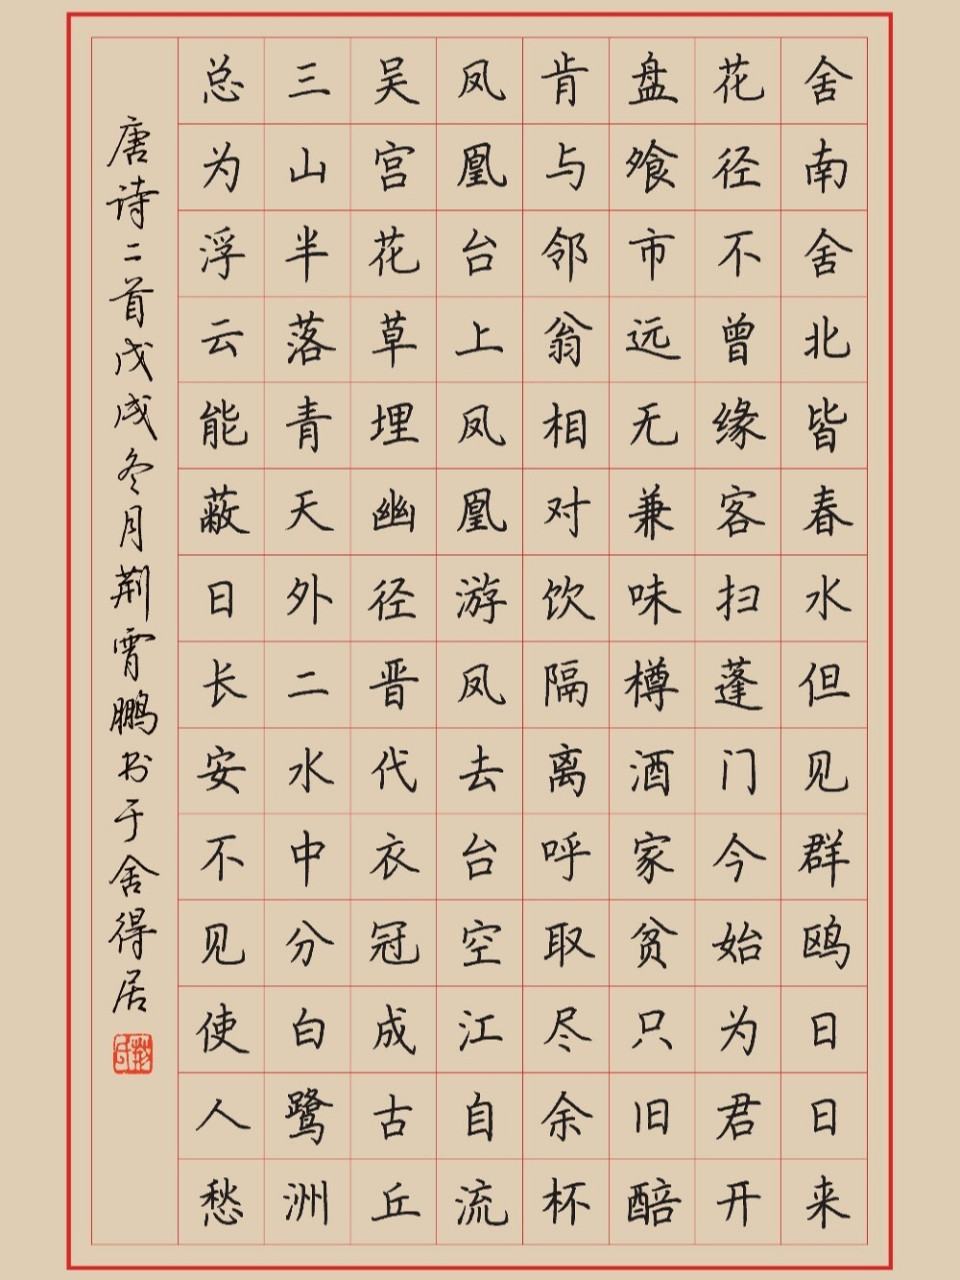 舍南舍北皆春水但见群鸥日日来
花径不曾缘客扫蓬门今始为君开
盘飧市远无兼味樽酒家贫只旧醅
肯与邻翁相对饮隔离呼取尽余杯
凤凰台上凤凰游凤去台空江自流
吴宫花草埋幽径晋代衣冠成古丘
三山半落青天外二水中分白鹭洲
总为浮云能蔽日长安不见使人愁
唐诗二首戊戌冬月荆霄鹏书于舍得居